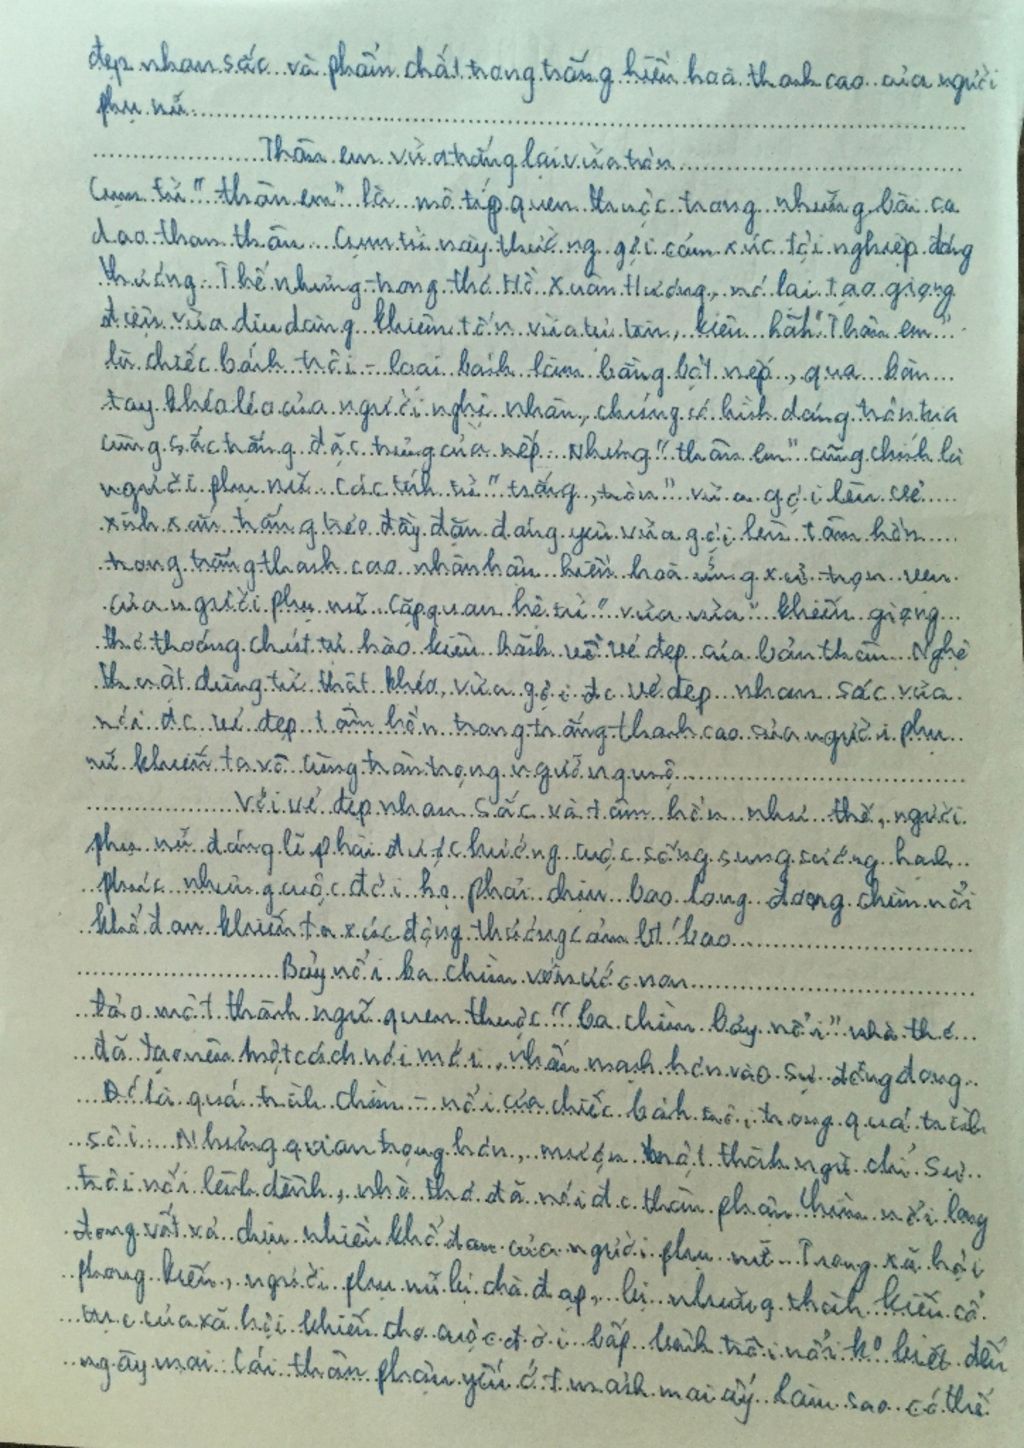 đẹp nhan sắc và phẩm chất trong trắng hiền hoà thanh cao của người
phụ nữ
Thân em vừa trắng lại vừa tròn
Cụm từ "thân em" là mô típ quen thuộc trong những bài ca
dao than thân. Cụm từ này thường gợi cảm xúc tội nghiệp đáng
thương. Thế nhưng trong thơ Hồ Xuân Hương, nó lại tạo giọng
điệu vừa dịu dàng khiêm tốn vừa tự tin, kiêu hãnh "Thân em"
là chiếc bánh trôi - loại bánh làm bằng bột nếp, qua bàn
tay khéo léo của người nghệ nhân, chúng có hình dáng tròn trịa
cùng sắc trắng đặc trưng của nếp. Nhưng "thân em" cũng chính là
người phụ nữ. Các tính từ "trắng, tròn" vừa gợi lên vẻ
xinh xắn trắng trẻo đầy đặn đáng yêu vừa gợi lên tâm hồn
trong trắng thanh cao nhân hậu hiền hoà ứng xử trọn vẹn
của người phụ nữ. Cặp quan hệ từ "vừa vừa" khiến giọng
thơ thoáng chút tự hào kiêu hãnh về vẻ đẹp của bản thân. Nghệ
thuật dùng từ thật khéo, vừa gợi đc vẻ đẹp nhan sắc vừa
nói đc vẻ đẹp tâm hồn trong trắng thanh cao của người phụ
nữ khiến ta vô cùng trân trọng ngưỡng mộ
Với vẻ đẹp nhan sắc và tâm hồn như thế, người
phụ nữ đáng lẽ phải được hưởng cuộc sống sung sướng hạnh
phúc nhưng cuộc đời họ phải chịu bao long đong chìm nổi
khổ đau khiến ta xúc động thương cảm bt bao
Bảy nổi ba chìm với nước non
Đảo một thành ngữ quen thuộc "ba chìm bảy nổi" nhà thơ
đã tạo nên một cách nói mới, nhấn mạnh hơn vào sự long đong.
Đó là quá trình chìm - nổi của chiếc bánh trôi, trong quá trình
sôi. Nhưng quan trọng hơn, mượn một thành ngữ chỉ sự
trôi nổi lênh đênh, nhà thơ đã nói đc thân phận chìm nổi long
đong vất vả chịu nhiều khổ đau của người phụ nữ. Trong xã hội
phong kiến, người phụ nữ bị chà đạp, bị những thành kiến cổ
của xã hội khiến cho cuộc đời bấp bênh trôi nổi ko biết đến
ngày mai. Cái thân phận yếu ớt mảnh mai ấy làm sao có thể